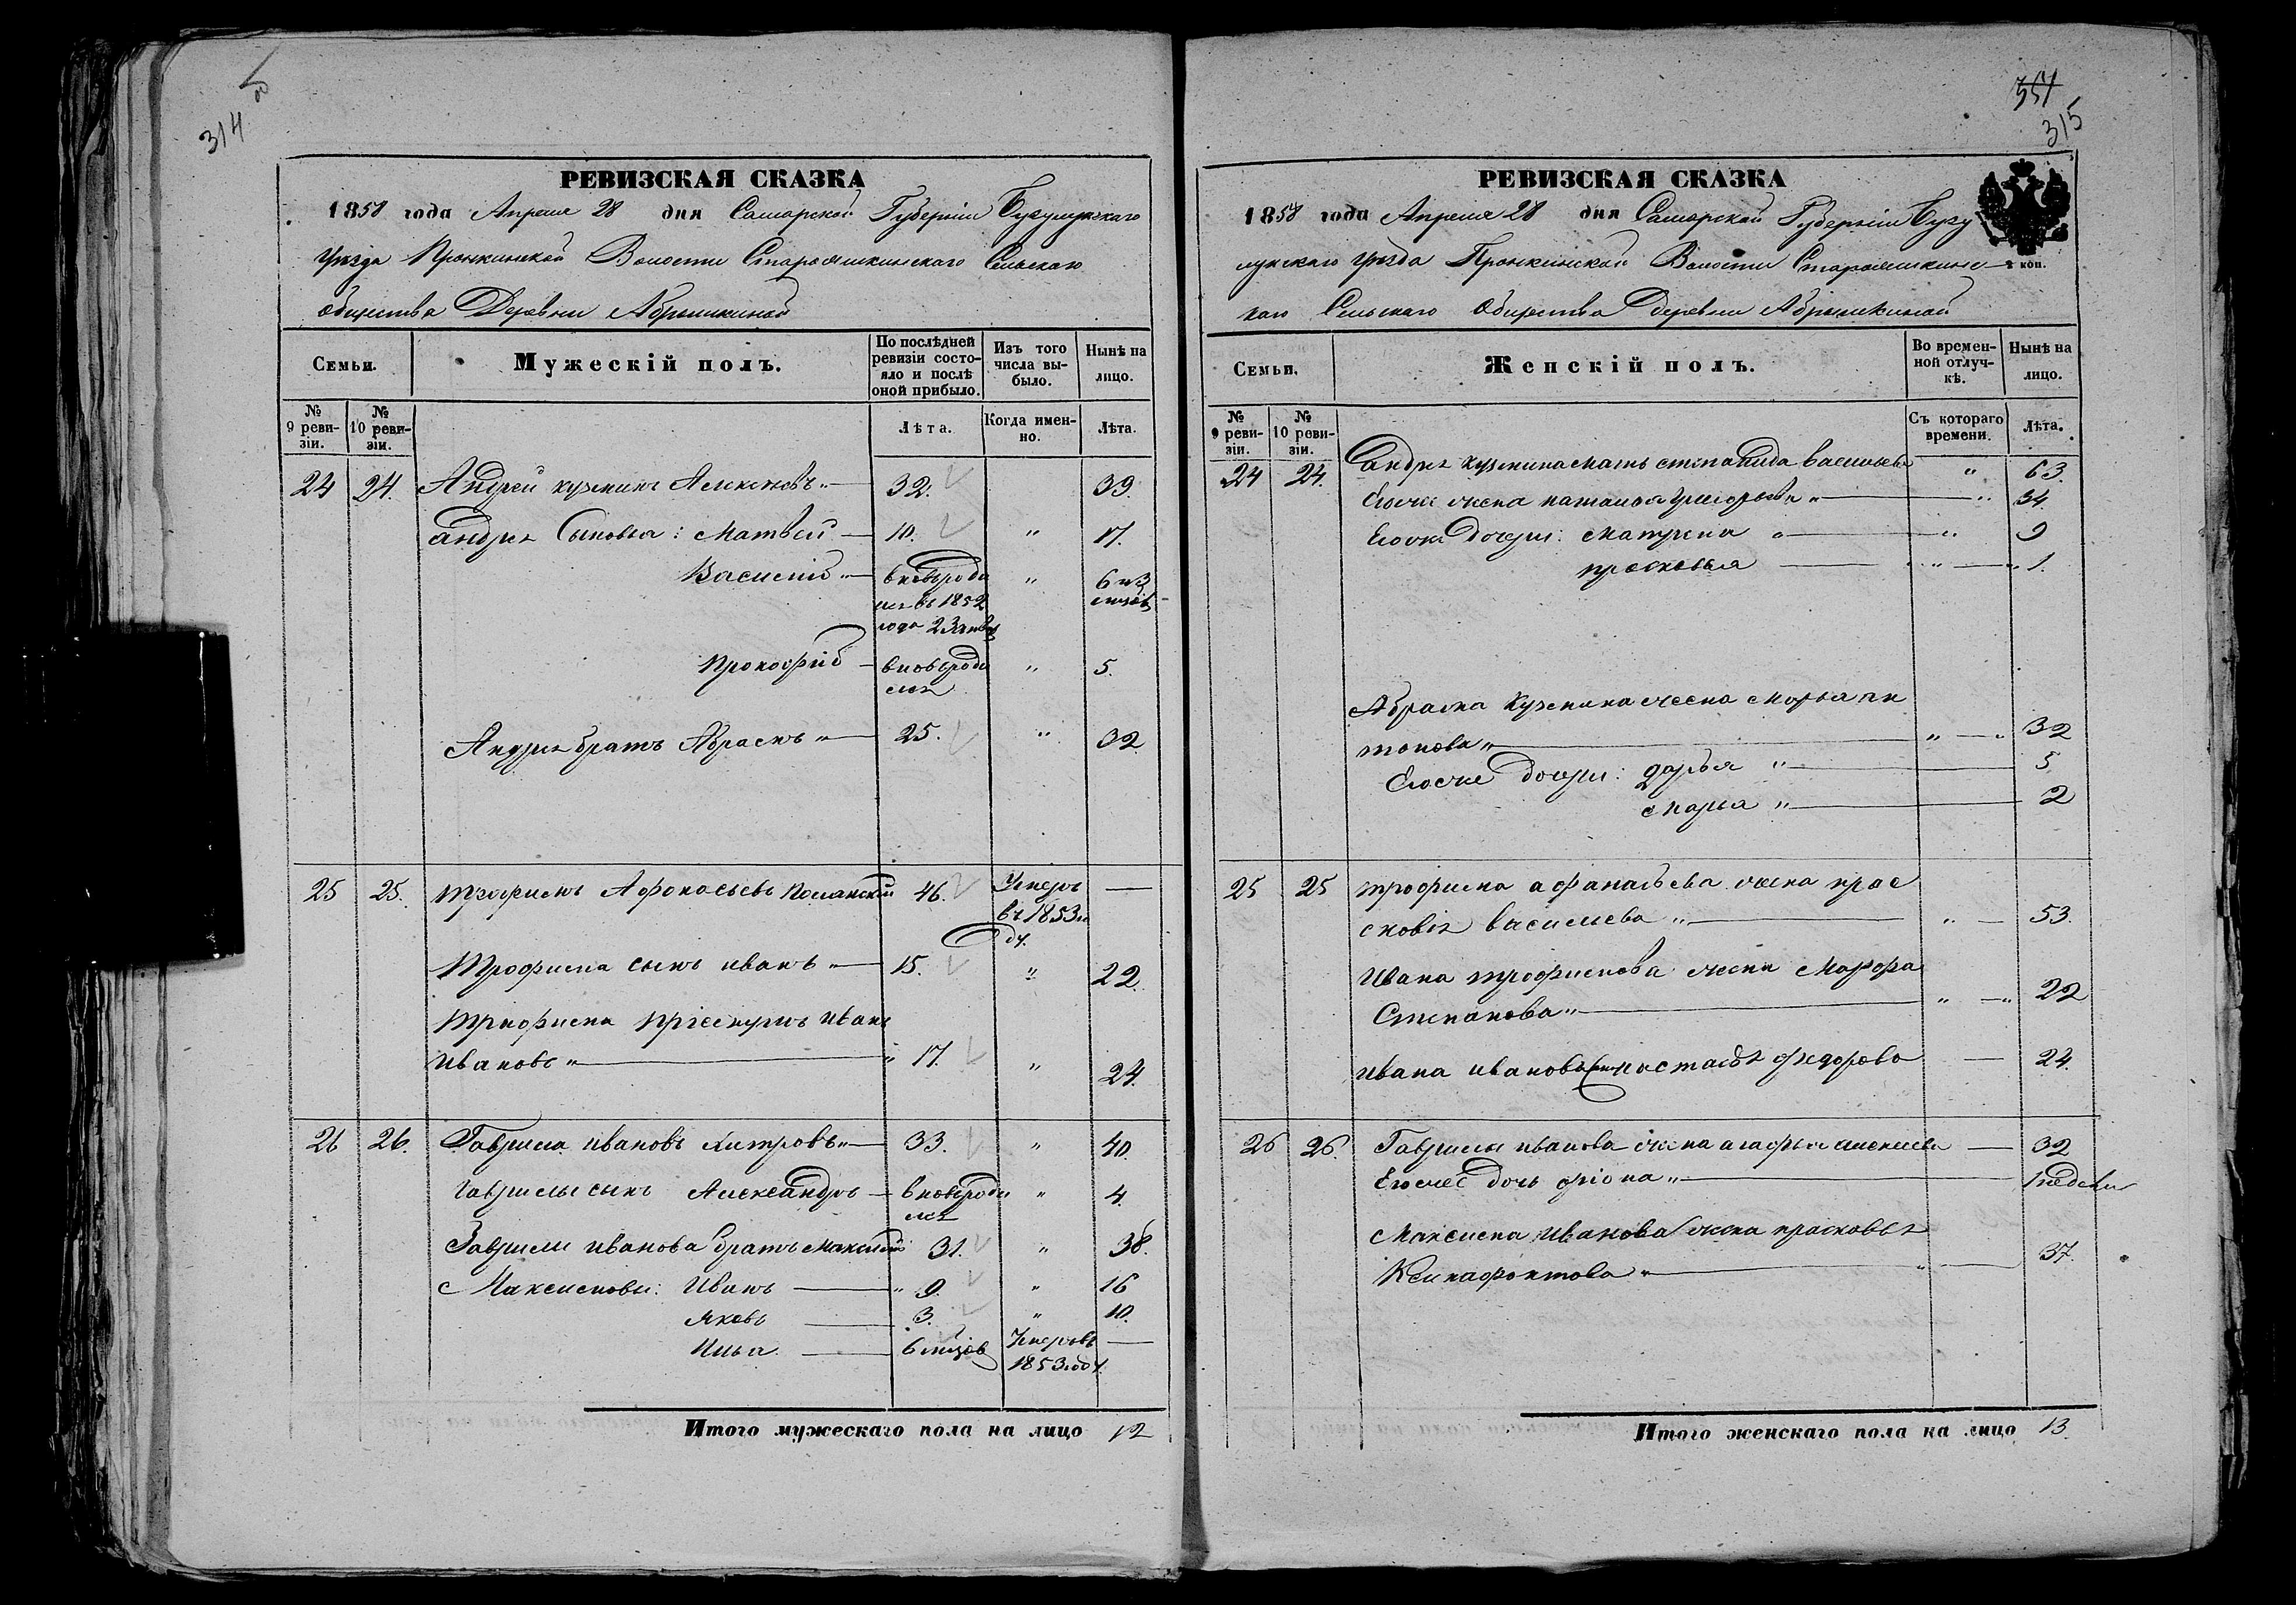 314 об
РЕВИЗСКАЯ СКАЗКА
1858 года Апреля 28 дня Самарской Губернiи Бугурусланскаго
уезда Пронкинской Волости Староякшинскаго Сельскаго
Общества Деревни Абрышкиной
Семьи.
Мужескій полъ.
По послѣдней ревизіи состояло и послѣ оной прибыло.
Изъ того числа выбыло.
Нынѣ на лицо.
№ 9 ревизіи.
№ 10 ревизіи.
Лѣта.
Когда именно.
Лѣта.
24 24. Андрей кузминъ 32. 39.
андрея Сыновья: Матвей 10. " 17.
Василий вновьроди " 6 и 3
лся въ 1852 мцов
года 23
Прокофий вновьроди " 5.
лся
Андрея братъ Абрамъ 25. " 32
25 25. трофимъ Афонасьевъ 46. Умеръ —
въ 1853 го
ду.
Трофима сынъ иванъ 15. " 22.
трофима приемышъ иванъ
ивановъ " 17. " 24.
26 26. Гаврила ивановъ хитровъ 33. " 40.
Гаврилы сынъ Александръ вновьроди " 4.
лся
Гаврилы иванова братъ максимъ 31. " 38.
Максимовы: Иванъ 9. " 16
яковъ 3. " 10.
Илья 6 мцов Умеръ въ —
1853 году
Итого мужескаго пола на лицо 12
351
315
РЕВИЗСКАЯ СКАЗКА
1858 года Апреля 28 дня Самарской Губернiи Бугу
уезда Пронкинской Волости
каго Сельскаго Общества деревни Абрышкиной
коп.
Семьи.
Женскій полъ.
Во временной отлучкѣ.
Нынѣ на лицо.
№ 9 ревизіи.
№ 10 ревизіи.
Съ котораго времени.
Лѣта.
24 24. андрея кузмина мать степанида васильева " 63.
Егоже жена наталья григорьева " 34.
Егоже Дочери: матрена " 9
прасковья " 1.
Абрама Кузмина жена марья ан
тонова " 32
Егоже дочери: дарья " 5
марья " 2
25 25 трофима афанасьева жена прас
ковья василиева " 53.
Ивана трофимова жена Марфа
Степанова " 22
ивана иванова жена настасья федорова — 24.
26 26. Гаврилы иванова жена агафья алексеева — 32
Егоже дочь фiона " 1 недели
Максима Иванова жена прасковья
Ксинафонтова " 37.
Итого женскаго пола на лицо 13.